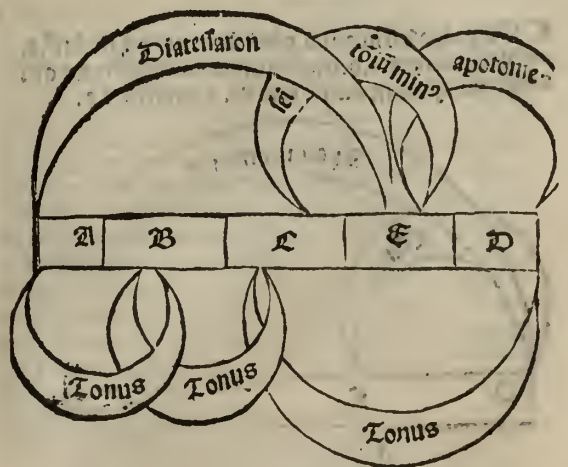 Diateſſaron
ſei
toiũ minꝰ
apotome
A B C E D
Tonus
Tonus
Tonus